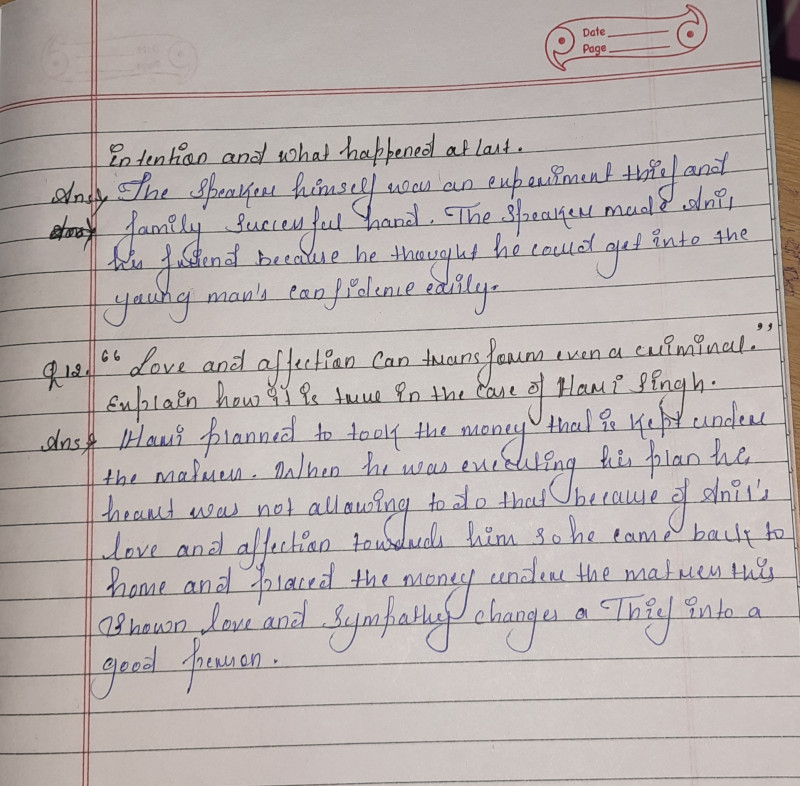 Date
Page
intention and what happened at last.
Ans) The Speaker himself was an experiment thief and
family succesful hand. The Speaker made Anil
his friend because he thought he could get into the
young man's confidence easily.
Q12. "Love and affection can transform even a criminal."
Explain how it is true in the case of Hari Singh.
Ans) Hari planned to took the money that is kept under
the matress. When he was executing his plan he
heart was not allowing to do that because of Anil's
love and affection towards him so he came back to
home and placed the money under the matress this
shown love and sympathy changes a Thief into a
good person.